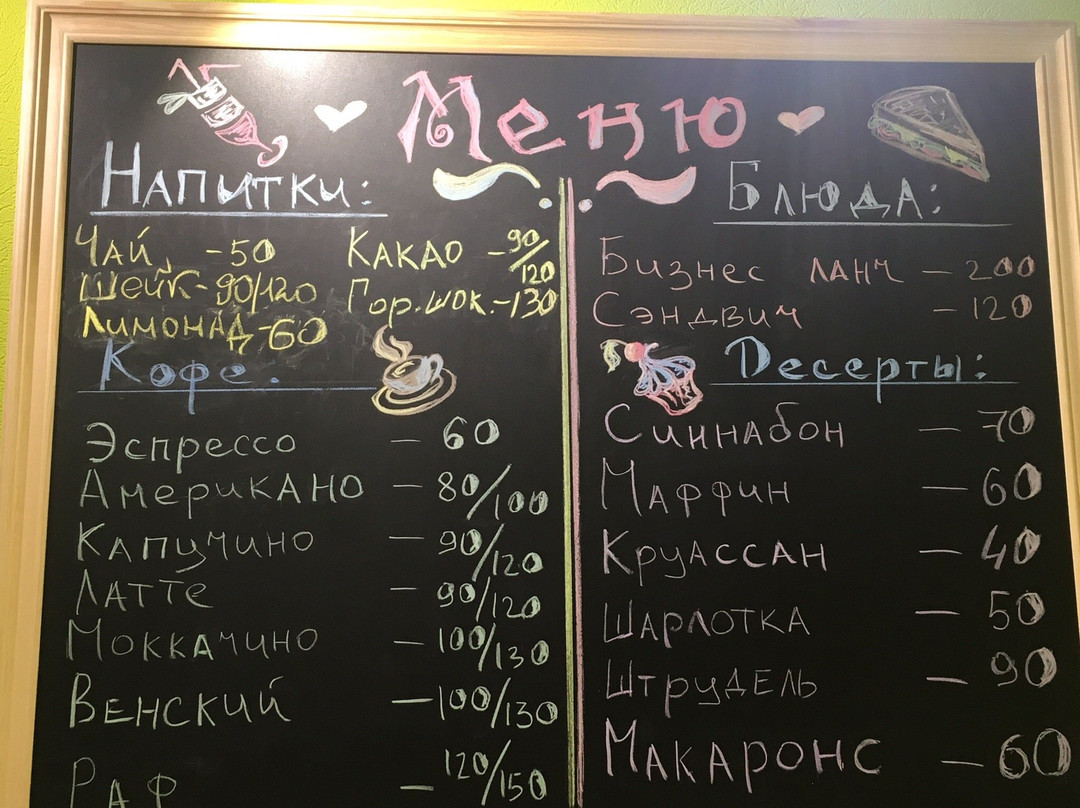 Меню
Напитки:
Чай - 50
Шейк - 90/120
Лимонад - 60
Какао - 90/120
Гор. шок. - 130
Кофе.
Эспрессо - 60
Американо - 80/100
Капучино - 90/120
Латте - 90/120
Моккачино - 100/130
Венский - 100/130
Раф - 120/150
Блюда:
Бизнес ланч - 200
Сэндвич - 120
Десерты:
Синнабон - 70
Маффин - 60
Круассан - 40
Шарлотка - 50
Штрудель - 90
Макаронс - 60